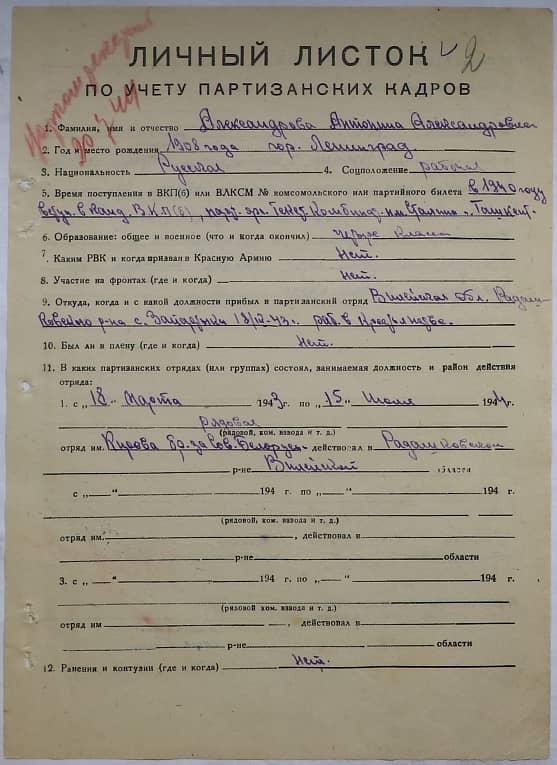 2
ЛИЧНЫЙ ЛИСТОК
ПО УЧЕТУ ПАРТИЗАНСКИХ КАДРОВ
1. Фамилия, имя и отчество Александрова Антонина Александровна
2. Год и место рождения 1908 года гор. Ленинград
3. Национальность Русская 4. Соцположение рабочая
5. Время поступления в ВКП(б) или ВЛКСМ № комсомольского или партийного билета в 1940 году
вступ. в канд. ВКП(б), парт. орг. Текст. Комбинат им. Сталина г. Ташкент.
6. Образование: общее и военное (что и когда окончил) четыре класса
7. Каким РВК и когда призван в Красную Армию Нет.
8. Участие на фронтах (где и когда) Нет.
9. Откуда, когда и с какой должности прибыл в партизанский отряд Вилейская обл. Радош
ковского р-на с. 18/III-43 г. раб. в
10. Был ли в плену (где и когда) Нет.
11. В каких партизанских отрядах (или группах) состоял, занимаемая должность и район действия
отряда:
1. с „18“ Марта 1943 г. по „15“ Июля 1944 г.
рядовой
(рядовой, ком. взвода и т. д.)
отряд им. Кирова бр. за Сов. Белорус. действовал в Радошковском
р-не Вилейской области
с „ “ 194 г. по „ “ 194 г.
(рядовой, ком. взвода и т. д.)
отряд им. , действовал в
р-не области
3. с „ “ 194 г. по „ “ 194 г.
(рядовой, ком. взвода и т. д.)
отряд им , действовал в
р-не области
12. Ранения и контузии (где и когда) Нет.